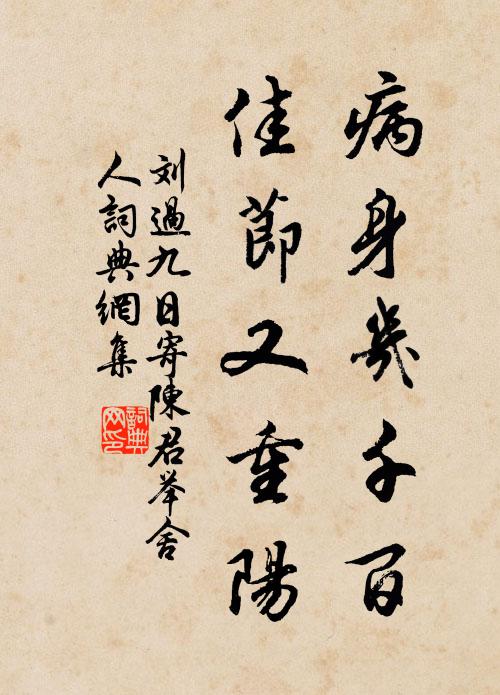 病身幾千百
佳節又重陽
刘過九日寄陳君举舍
人詞典網集
詞典网印